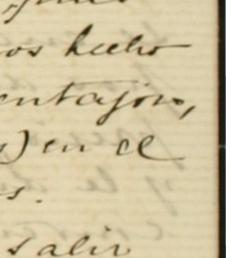 os hecho
entajosos,
s) en el
s.
salir